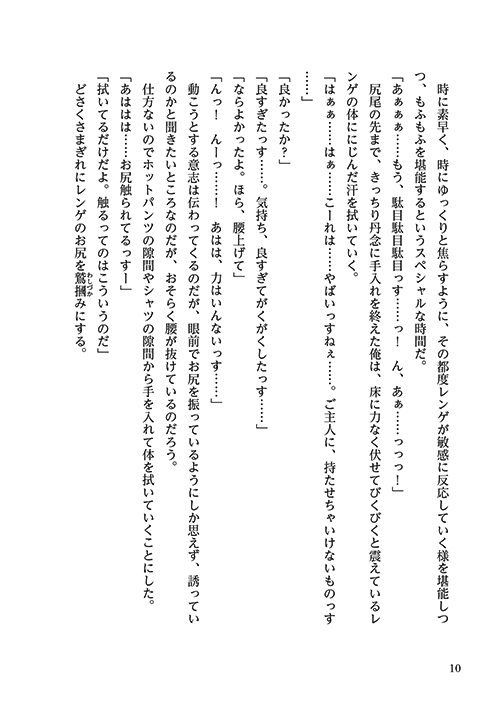 時に素早く、時にゆっくりと焦らすように、その都度レンゲが敏感に反応していく様を堪能しつ
つ、もふもふを堪能するというスペシャルな時間だ。
「あぁぁぁ……もう、駄目駄目駄目っす……っ！　ん、あぁ……っっっ！」
尻尾の先まで、きっちり丹念に手入れを終えた俺は、床に力なく伏せてびくびくと震えているレ
ンゲの体ににじんだ汗を拭いていく。
「はぁぁ……はぁ……こーれは……やばいっすねぇ……。ご主人に、持たせちゃいけないものっす
……」
「良かったか？」
「良すぎたっす……。気持ち、良すぎてがくがくしたっす……」
「ならよかったよ。ほら、腰上げて」
「んっ！　んーっ……！　あはは、力はいんないっす……」
動こうとする意志は伝わってくるのだが、眼前でお尻を振っているようにしか思えず、誘ってい
るのかと聞きたいところなのだが、おそらく腰が抜けているのだろう。
仕方ないのでホットパンツの隙間やシャツの隙間から手を入れて体を拭いていくことにした。
「あははは……お尻触られてるっすー」
「拭いてるだけだよ。触るってのはこういうのだ」
どさくさまぎれにレンゲのお尻を鷲摑みにする。
わしづか
10